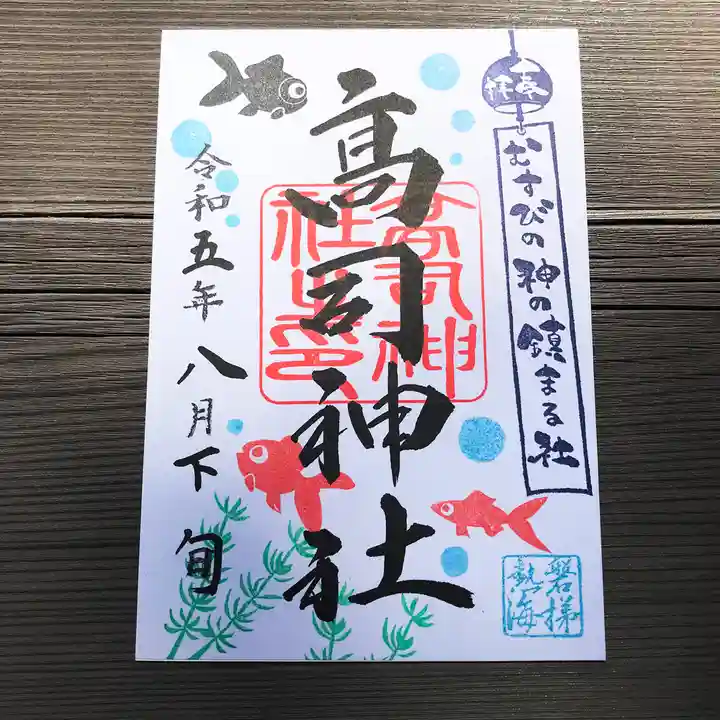 奉拝
むすびの神の鎮まる社
高司神社
高司神
社之印
令和五年八月下旬
磐梯
熱海